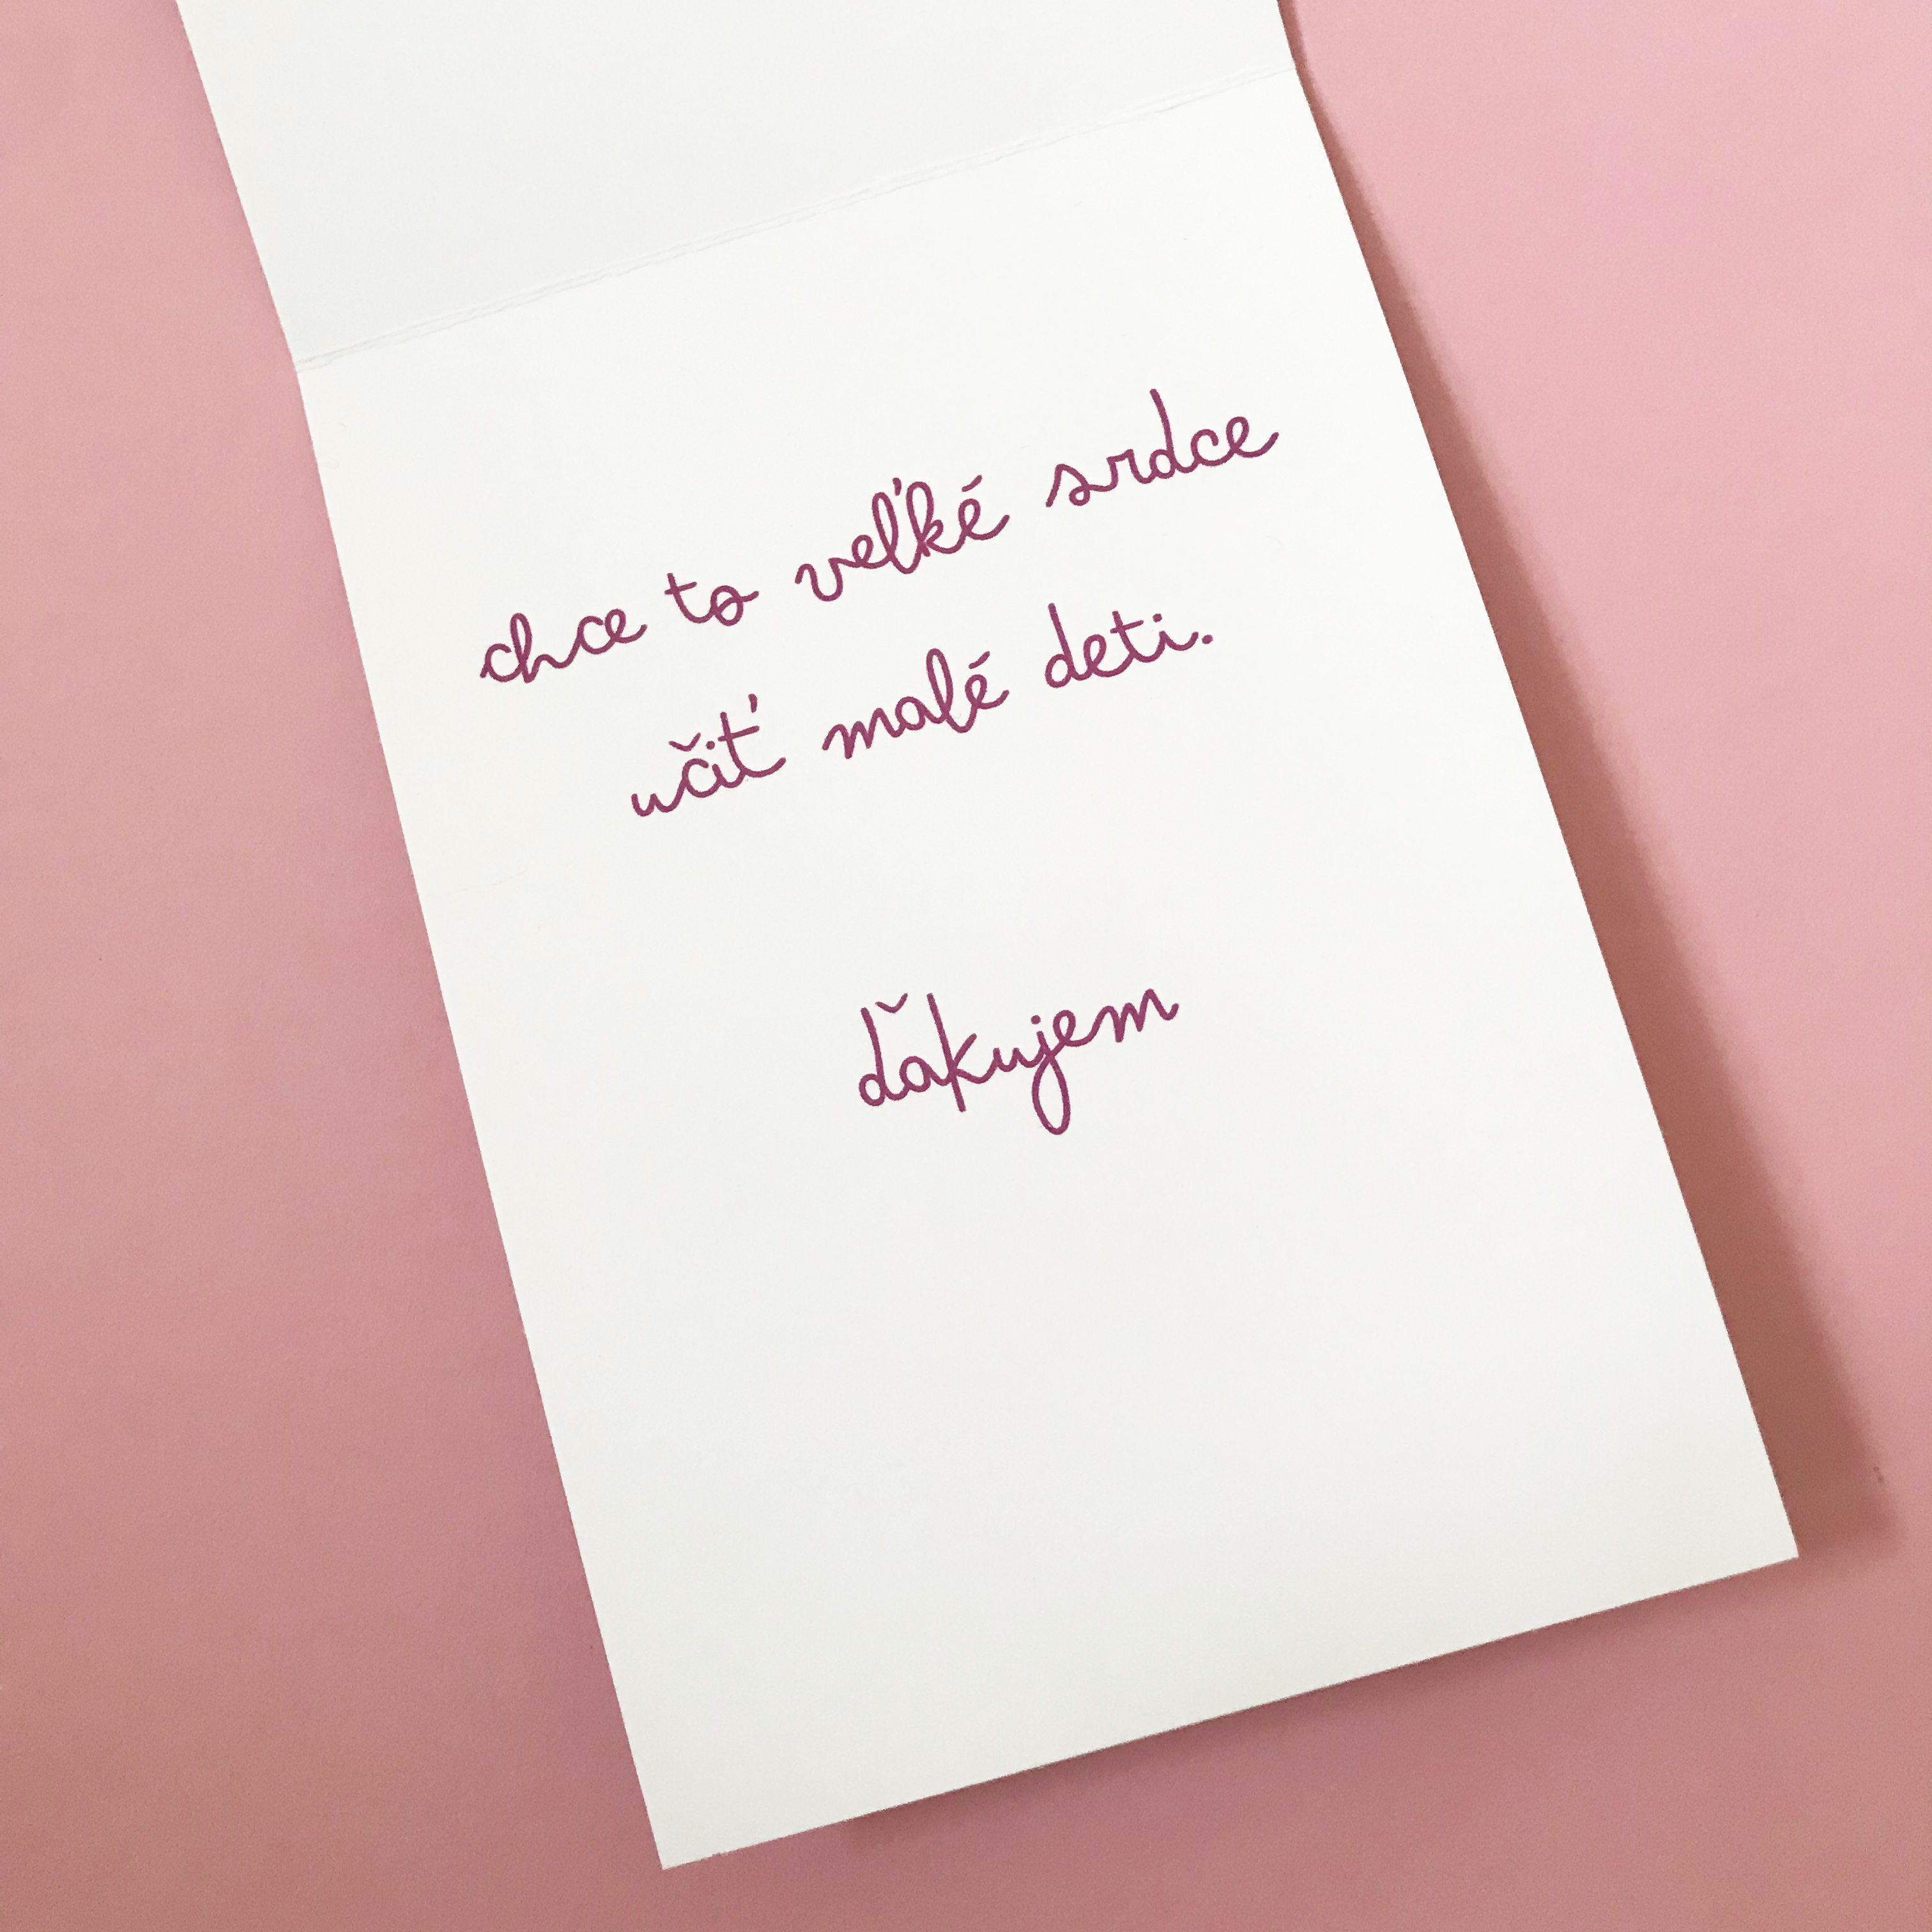 chce to veľké srdce
učiť malé deti.
ďakujem